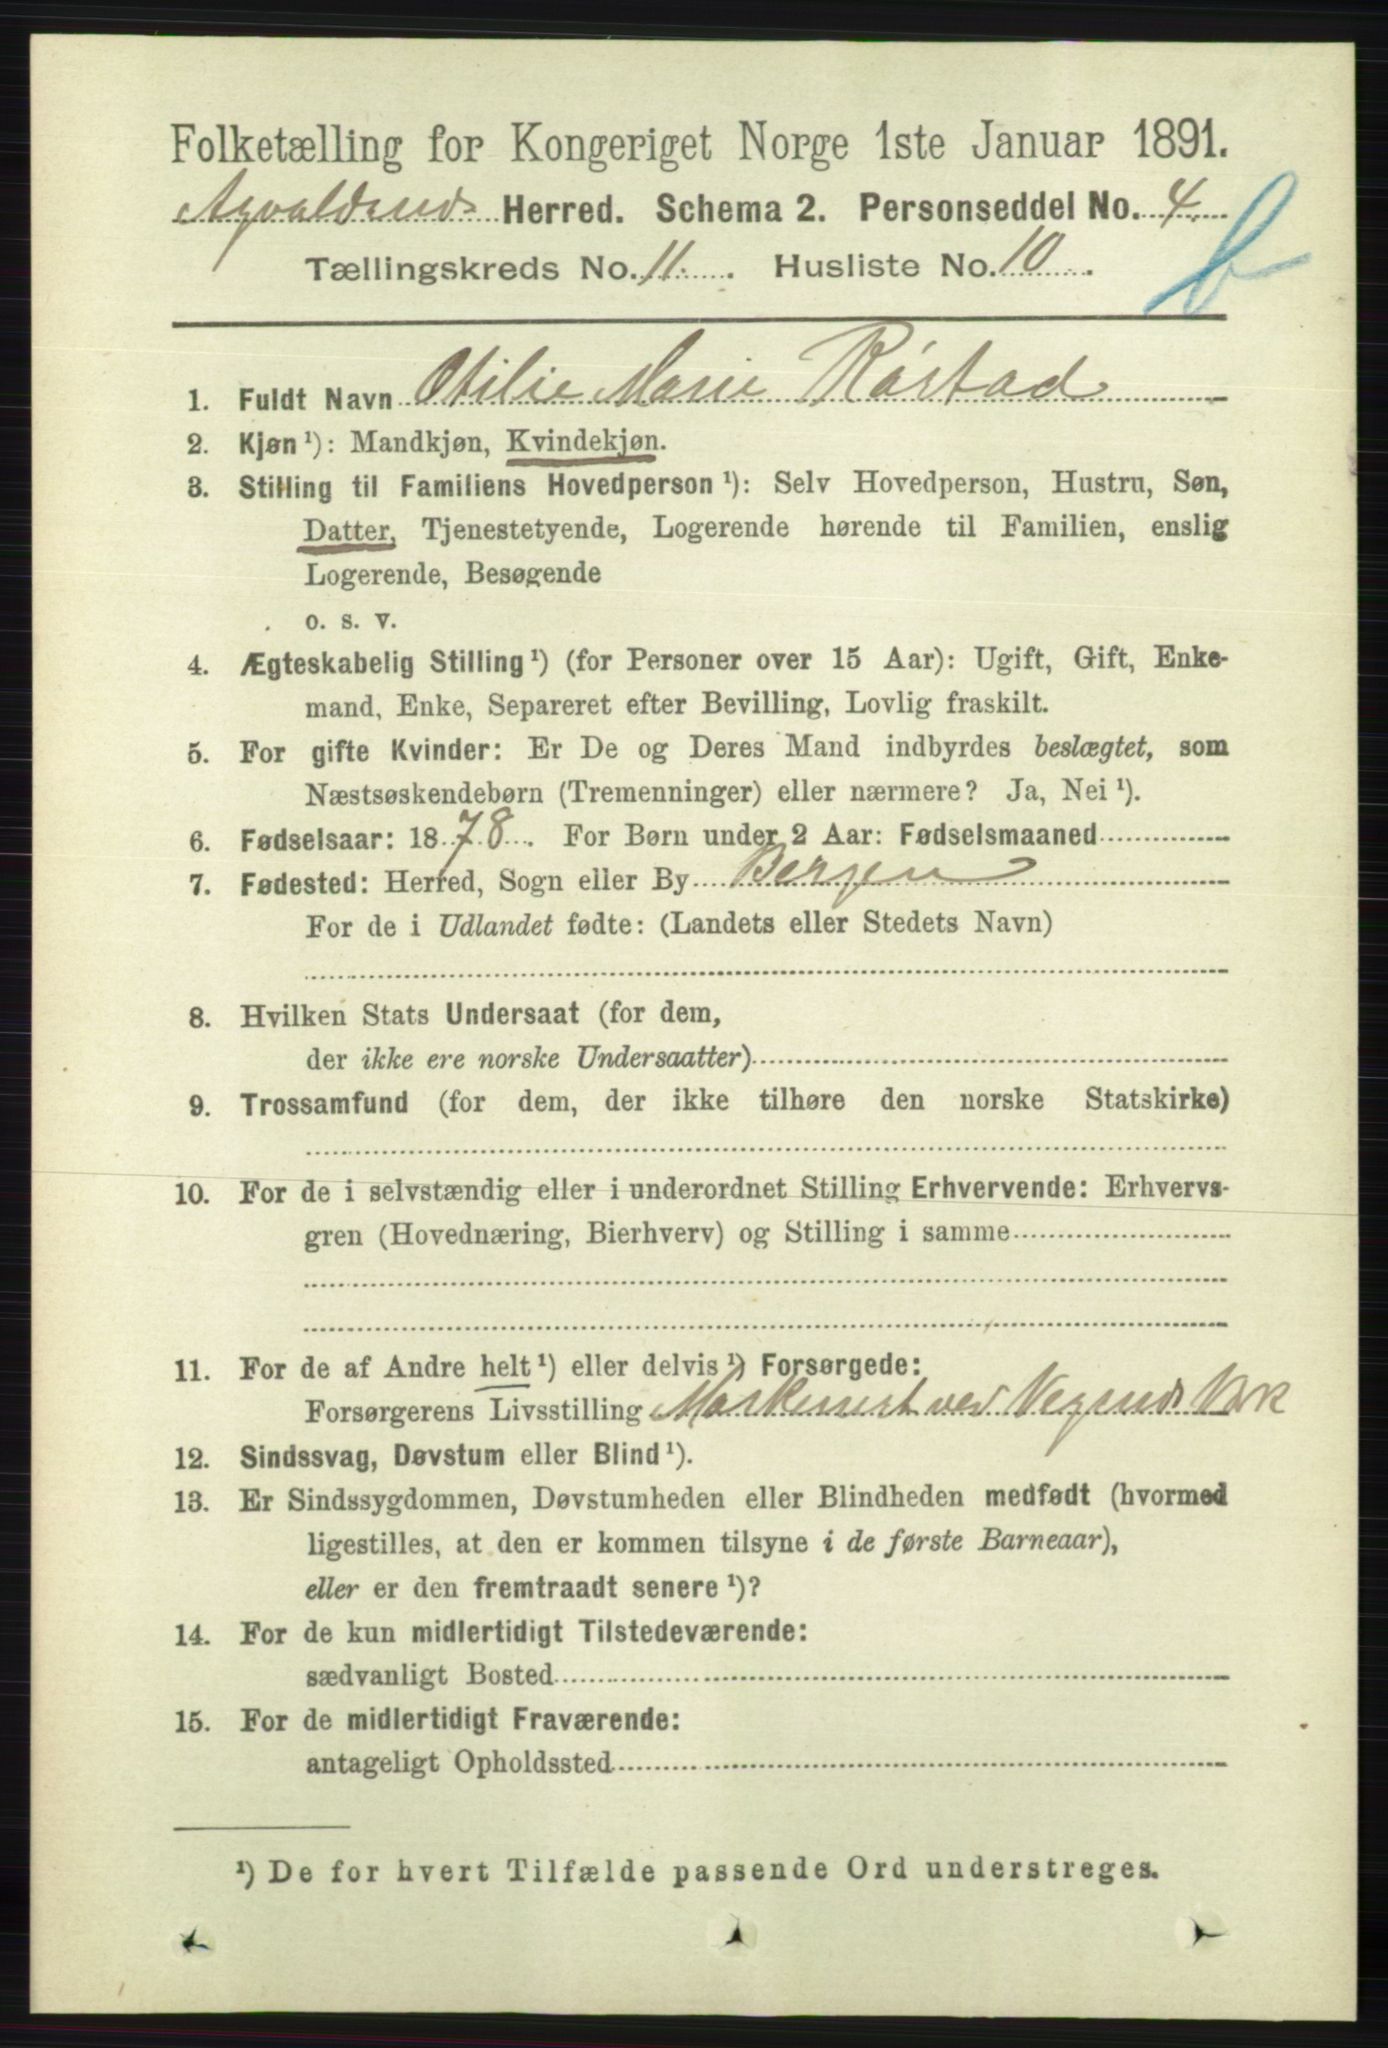 Folketælling for Kongeriget Norge 1ste Januar 1891.
Avaldsnes Herred. Schema 2. Personseddel No. 4.
Tællingskreds No. 11. Husliste No. 10.
b
1. Fuldt Navn Otilie Marie Róstad
2. Kjøn ¹): Mandkjøn, Kvindekjøn.
3. Stilling til Familiens Hovedperson ¹): Selv Hovedperson, Hustru, Søn,
Datter, Tjenestetyende, Logerende hørende til Familien, enslig
Logerende, Besøgende
o. s. v.
4. Ægteskabelig Stilling ¹) (for Personer over 15 Aar): Ugift, Gift, Enke-
mand, Enke, Separeret efter Bevilling, Lovlig fraskilt.
5. For gifte Kvinder: Er De og Deres Mand indbyrdes beslægtet, som
Næstsøskendebørn (Tremenninger) eller nærmere? Ja, Nei ¹).
6. Fødselsaar: 1878. For Børn under 2 Aar: Fødselsmaaned
7. Fødested: Herred, Sogn eller By Bergen
For de i Udlandet fødte: (Landets eller Stedets Navn)
8. Hvilken Stats Undersaat (for dem,
der ikke ere norske Undersaatter)
9. Trossamfund (for dem, der ikke tilhøre den norske Statskirke)
10. For de i selvstændig eller i underordnet Stilling Erhvervende: Erhvervs-
gren (Hovednæring, Bierhverv) og Stilling i samme
11. For de af Andre helt ¹) eller delvis ¹) Forsørgede:
Forsørgerens Livsstilling Maskinist ved
12. Sindssvag, Døvstum eller Blind ¹).
13. Er Sindssygdommen, Døvstumheden eller Blindheden medfødt (hvormed
ligestilles, at den er kommen tilsyne i de første Barneaar),
eller er den fremtraadt senere ¹)?
14. For de kun midlertidigt Tilstedeværende:
sædvanligt Bosted
15. For de midlertidigt Fraværende:
antageligt Opholdssted
¹) De for hvert Tilfælde passende Ord understreges.